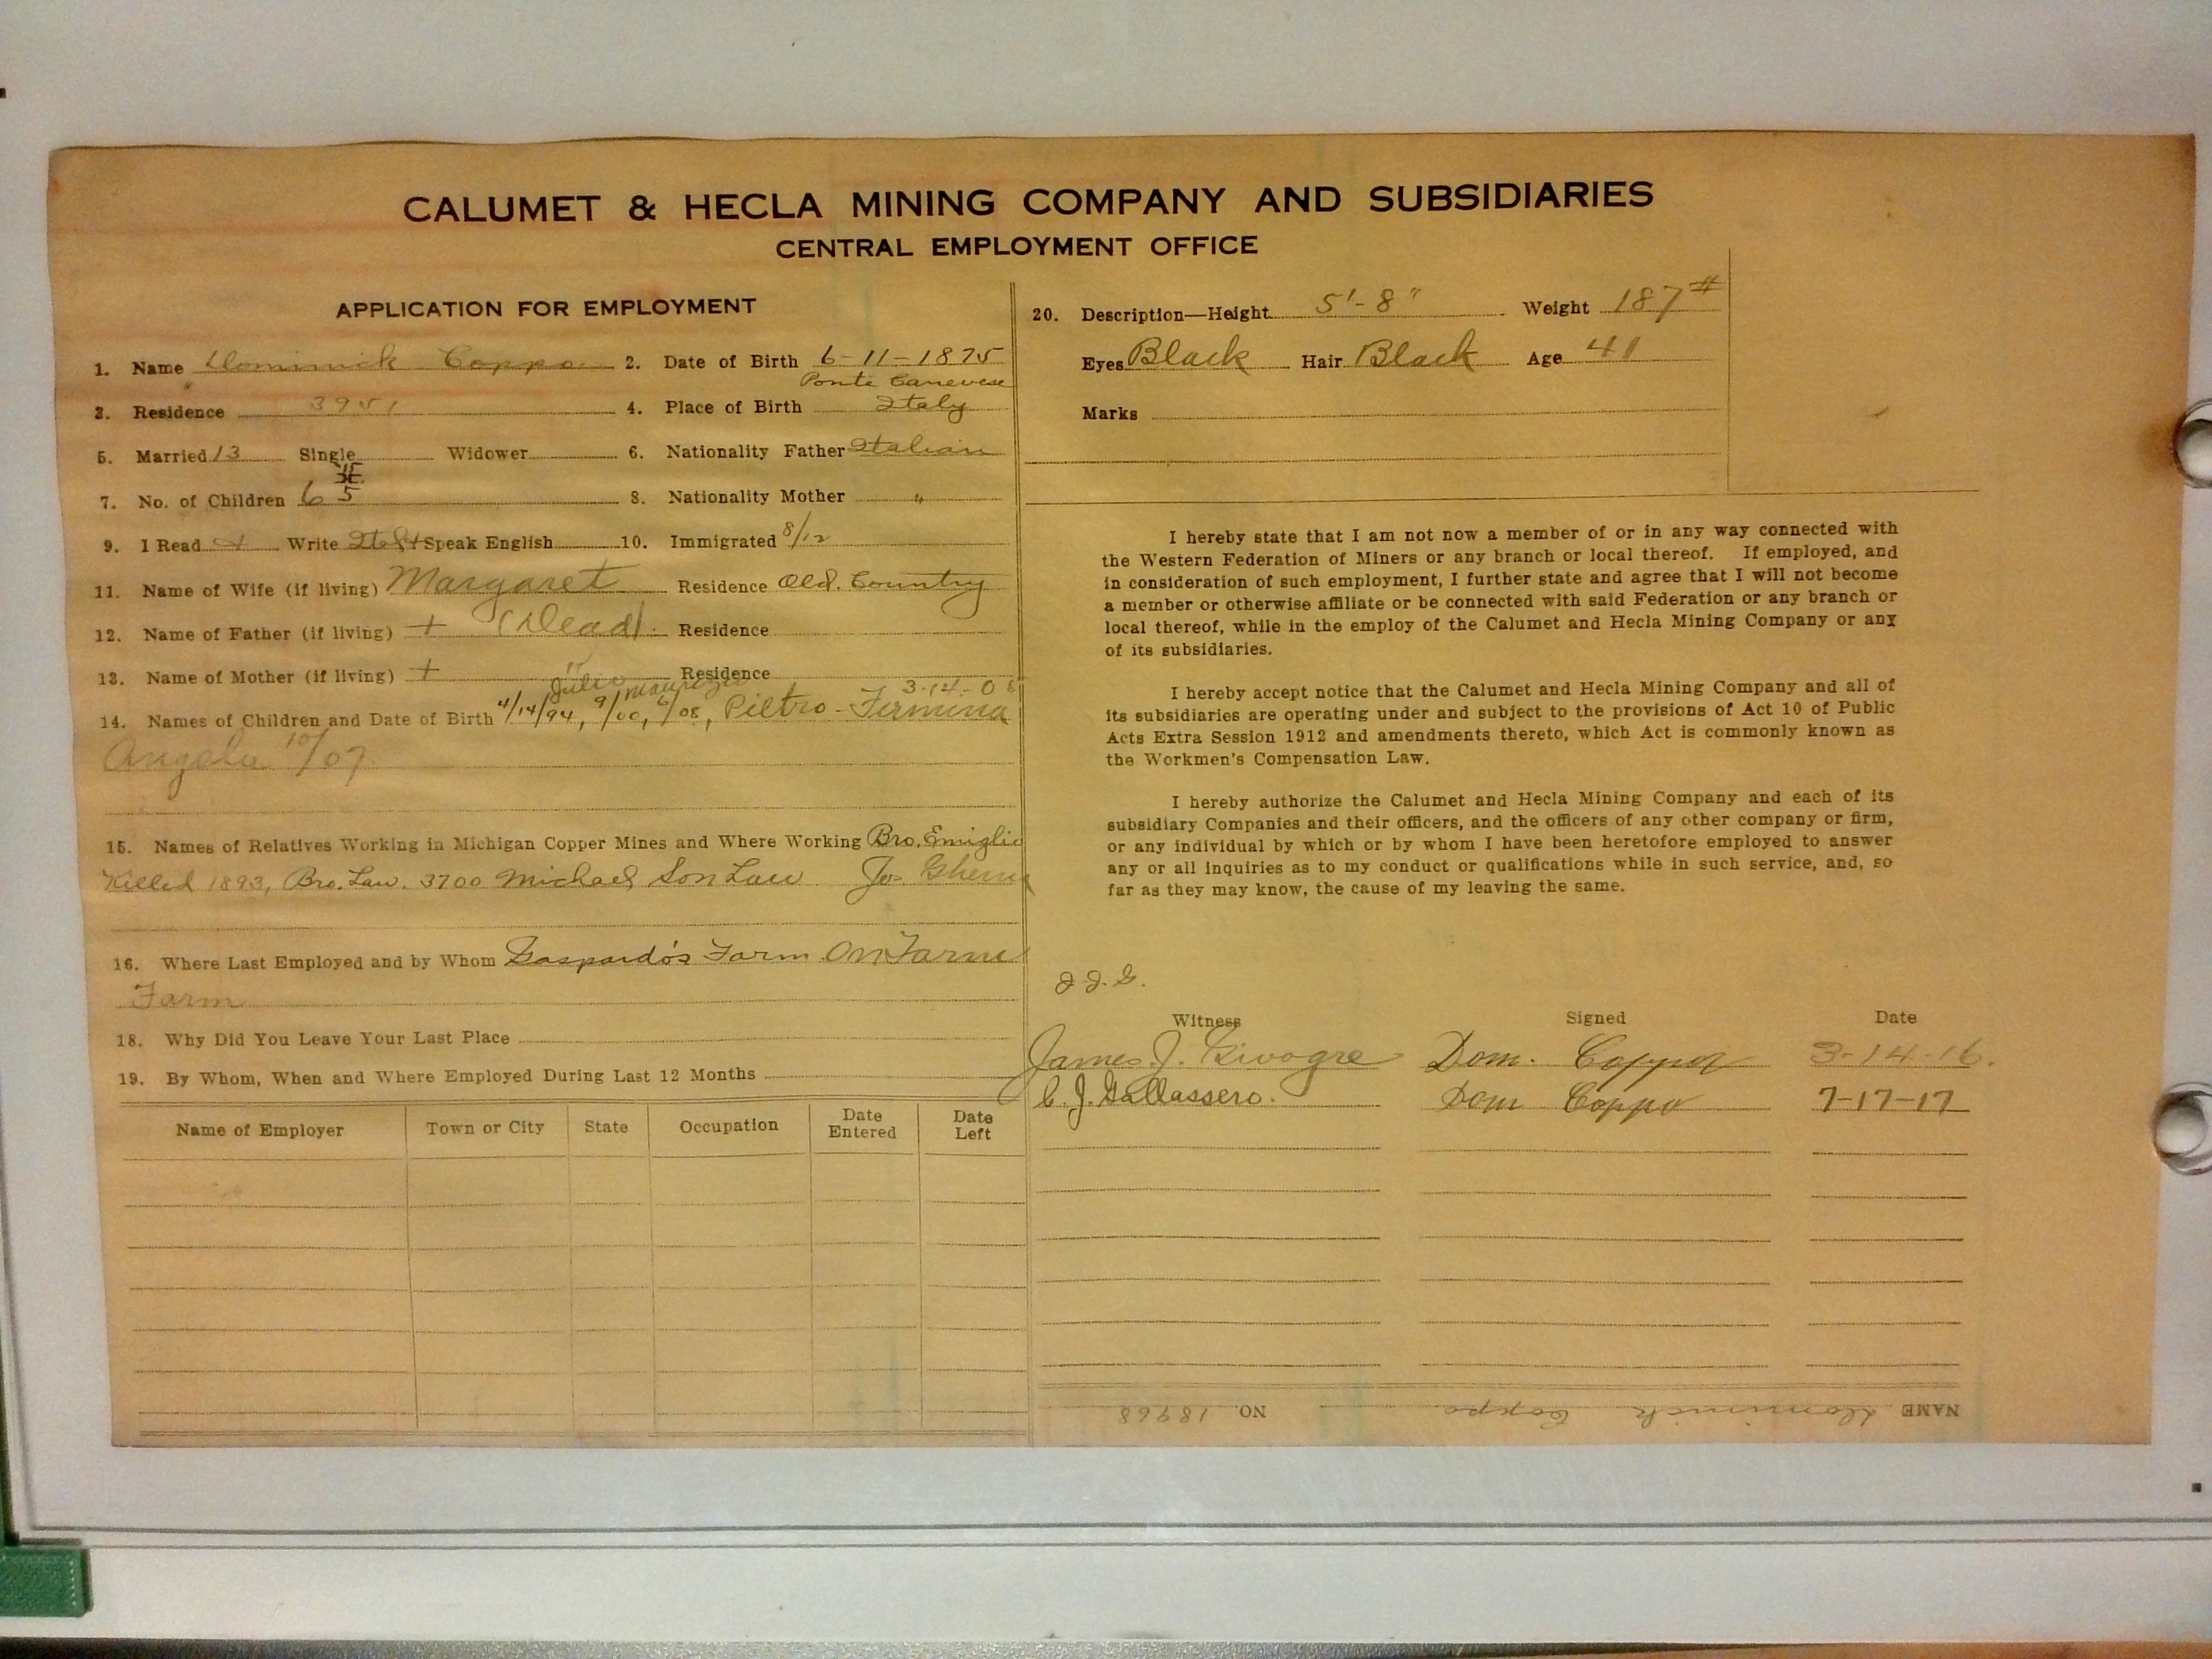 CALUMET & HECLA MINING COMPANY AND SUBSIDIARIES
CENTRAL EMPLOYMENT OFFICE
APPLICATION FOR EMPLOYMENT
1. Name Dominick Coppo 2. Date of Birth 6-11-1875
Ponte Canevese
3. Residence 3951 4. Place of Birth Italy
5. Married 13 Single Widower 6. Nationality Father Italian
7. No. of Children 6 5 8. Nationality Mother "
9. I Read + Write Ital + Speak English 10. Immigrated 8/12
11. Name of Wife (if living) Margaret Residence Old. Country
12. Name of Father (if living) + (Dead) Residence
13. Name of Mother (if living) + " Residence
Julio Maurizio 3-14-08
14. Names of Children and Date of Birth 4/14/94, 9/00, 6/08, Pietro - Firmina
Angela 10/07
15. Names of Relatives Working in Michigan Copper Mines and Where Working Bro. Emiglio
Killed 1893, Bro. Law. 3700 Michael Son Law Jo-
16. Where Last Employed and by Whom Gaspardo's Farm On Farm
Farm
18. Why Did You Leave Your Last Place
19. By Whom, When and Where Employed During Last 12 Months
Name of Employer Town or City State Occupation Date Entered Date Left
20. Description—Height 5'-8" Weight 187#
Eyes Black Hair Black Age 41
Marks
I hereby state that I am not now a member of or in any way connected with
the Western Federation of Miners or any branch or local thereof. If employed, and
in consideration of such employment, I further state and agree that I will not become
a member or otherwise affiliate or be connected with said Federation or any branch or
local thereof, while in the employ of the Calumet and Hecla Mining Company or any
of its subsidiaries.
I hereby accept notice that the Calumet and Hecla Mining Company and all of
its subsidiaries are operating under and subject to the provisions of Act 10 of Public
Acts Extra Session 1912 and amendments thereto, which Act is commonly known as
the Workmen's Compensation Law.
I hereby authorize the Calumet and Hecla Mining Company and each of its
subsidiary Companies and their officers, and the officers of any other company or firm,
or any individual by which or by whom I have been heretofore employed to answer
any or all inquiries as to my conduct or qualifications while in such service, and, so
far as they may know, the cause of my leaving the same.
J.J.G.
Witness Signed Date
James J. Dom. Coppo 3-14-16.
C. J. Gallassero. Dom Coppo 7-17-17
NAME Dominick Coppo NO. 18968